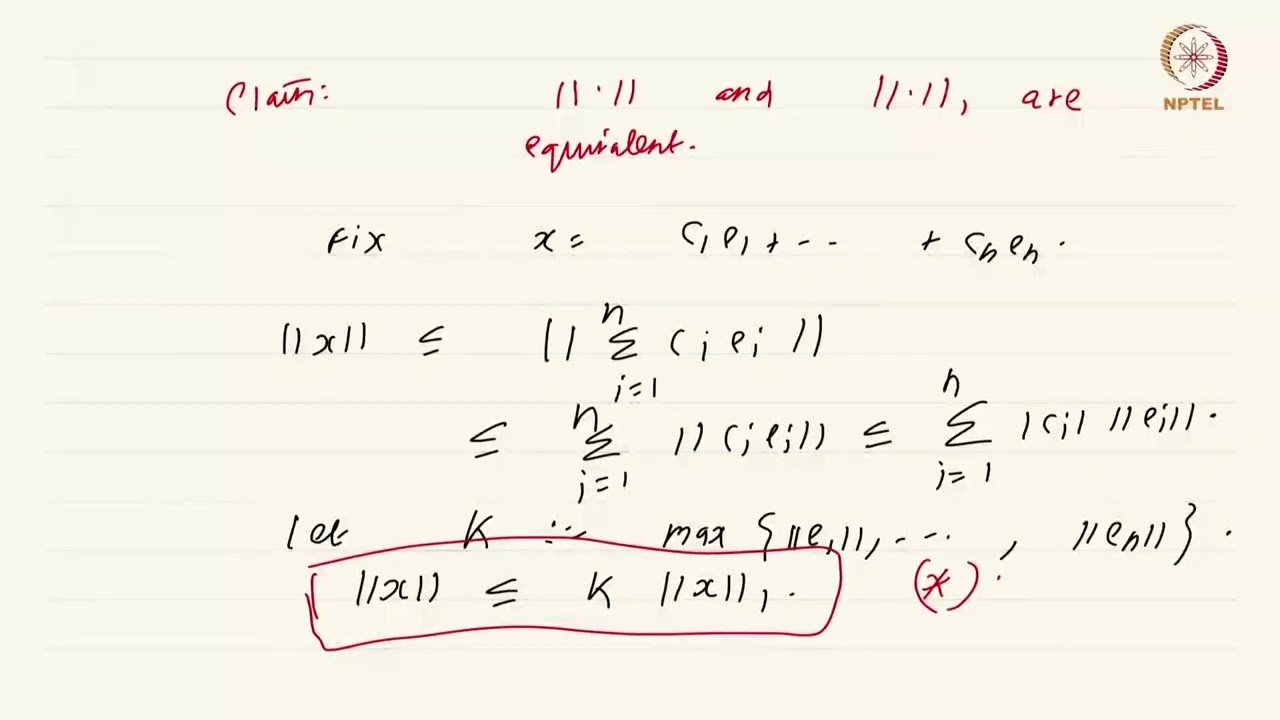 NPTEL
Claim: ||·|| and ||·||₁ are
equivalent.
Fix x = c₁e₁ + -- + cₙeₙ.
||x|| ≤ || Σⁿᵢ₌₁ cᵢ eᵢ ||
≤ Σⁿᵢ₌₁ ||cᵢeᵢ|| ≤ Σⁿᵢ₌₁ |cᵢ| ||eᵢ||.
let K := max {||e₁||, --- , ||eₙ||}.
||x|| ≤ K ||x||₁. (*)